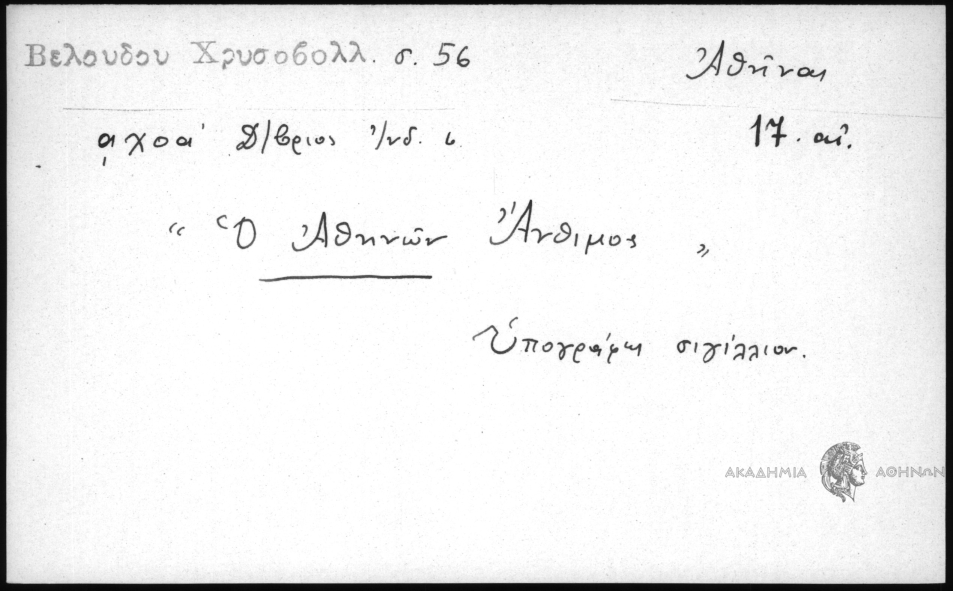 Βελουδου Χρυσοβολλ. σ. 56
Ἀθῆναι
͵αχοα' Δ/βριος Ἰνδ. ι
17. αἰ.
“ Ὁ Ἀθηνῶν Ἄνθιμος „
Ὑπογράφει σιγίλλιον.
ΑΚΑΔΗΜΙΑ ΑΘΗΝΩΝ